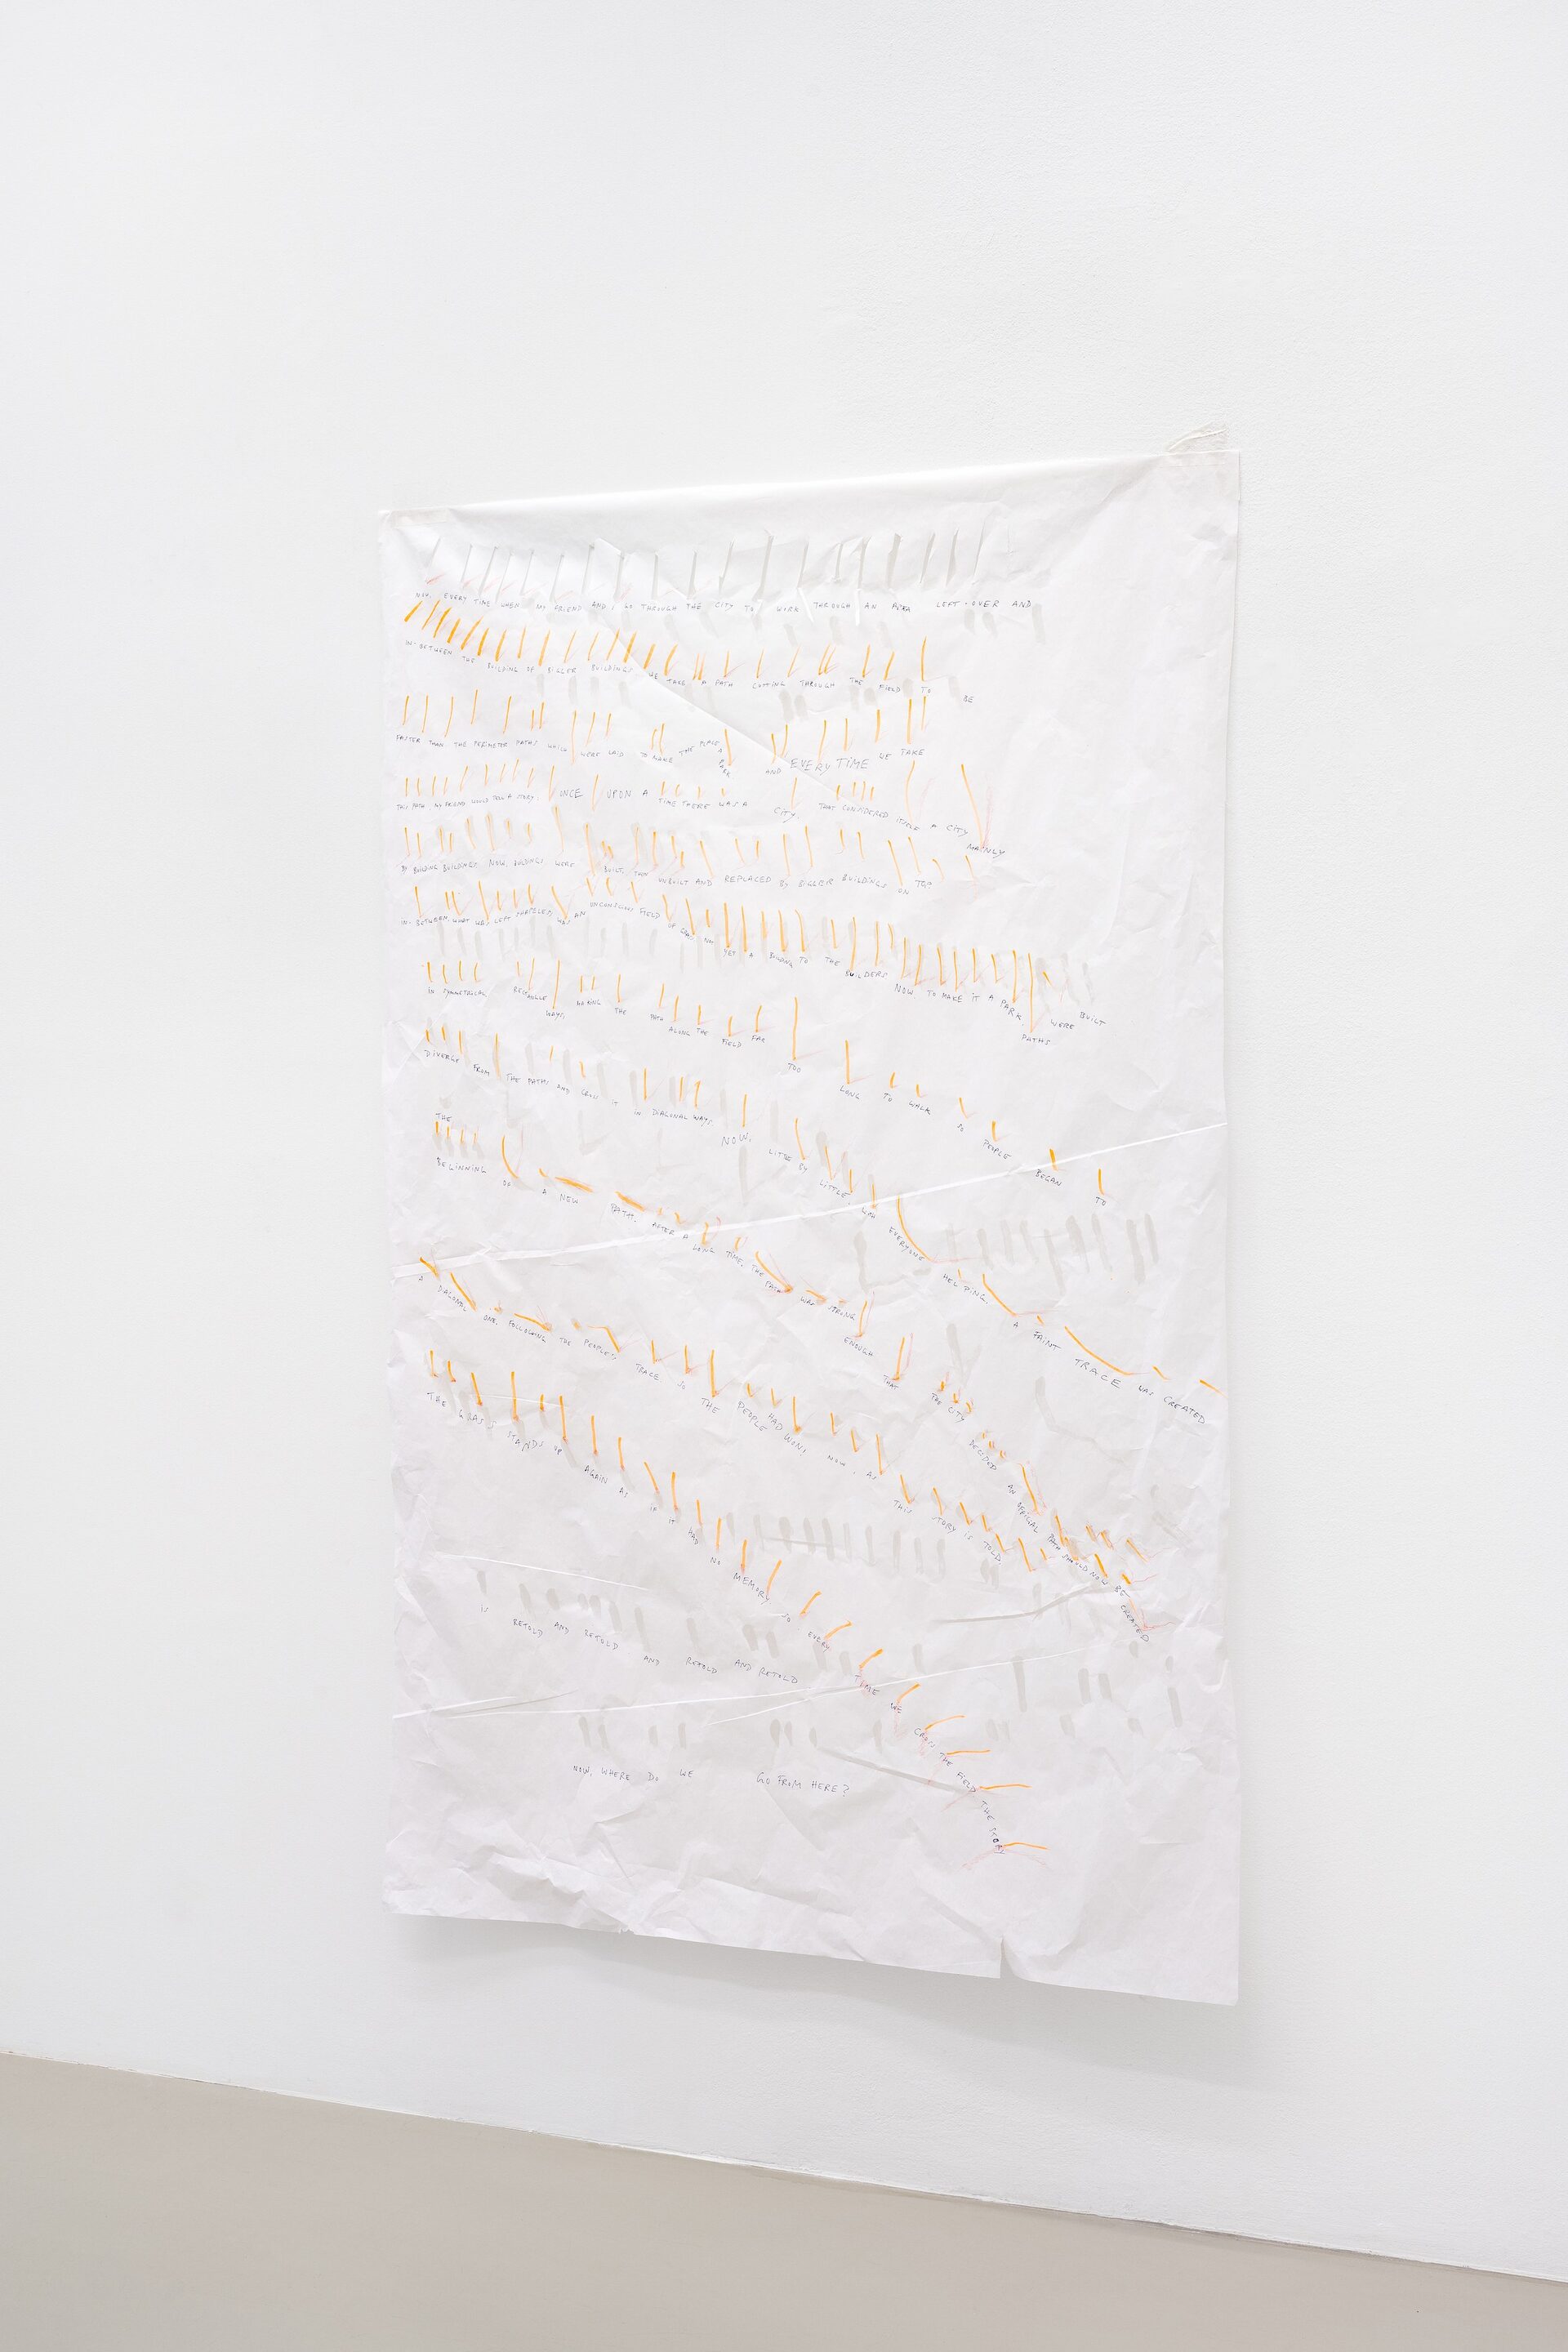 NOW, EVERY TIME WHEN MY FRIEND AND I GO THROUGH THE CITY TO WORK THROUGH AN AREA LEFT-OVER AND
IN-BETWEEN THE BUILDING OF BIGGER BUILDINGS WE TAKE A PATH CUTTING THROUGH THE FIELD TO BE
FASTER THAN THE PERIMETER PATHS WHICH WERE LAID TO MAKE THE PLACE A PARK AND EVERY TIME WE TAKE
THIS PATH MY FRIEND WOULD TELL A STORY: ONCE UPON A TIME THERE WAS A CITY, THAT CONSIDERED ITSELF A CITY MAINLY
BY BUILDING BUILDINGS. NOW, BUILDINGS WERE BUILT, THEN UNBUILT AND REPLACED BY BIGGER BUILDINGS ON TOP
IN-BETWEEN. WHAT WAS LEFT WAS AN FIELD OF GRASS NOT YET A BUILDING TO THE BUILDERS NOW. TO MAKE IT A PARK PATHS WERE BUILT
IN SYMMETRICAL RECTANGLE WAYS, MAKING THE PATH ALONG THE FIELD FAR TOO LONG TO WALK SO PEOPLE BEGAN TO
DIVERGE FROM THE PATHS AND CROSS IT IN DIAGONAL WAYS. NOW, LITTLE BY LITTLE, WITH EVERYONE HELPING, A FAINT TRACE WAS CREATED
THE BEGINNING OF A NEW PATH. AFTER A LONG TIME, THE PATH WAS STRONG ENOUGH THAT THE CITY DECIDED AN OFFICIAL PATH SHOULD NOW BE CREATED
A DIAGONAL ONE, FOLLOWING THE PEOPLE'S TRACE SO THE PEOPLE HAD WON! NOW, AS THIS STORY IS TOLD,
THE GRASS STANDS UP AGAIN AS IF IT HAD NO MEMORY SO EVERY TIME WE CROSS THE FIELD THE STORY
IS RETOLD AND RETOLD AND RETOLD AND RETOLD
NOW, WHERE DO WE GO FROM HERE?